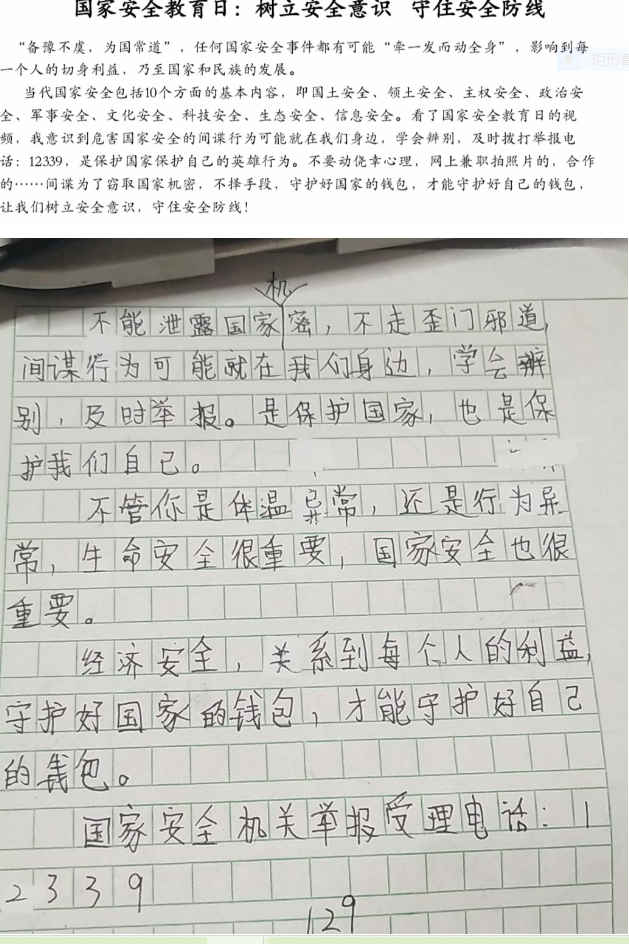 国家安全教育日：树立安全意识 守住安全防线
“备豫不虞，为国常道”，任何国家安全事件都有可能“牵一发而动全身”，影响到每
一个人的切身利益，乃至国家和民族的发展。
当代国家安全包括10个方面的基本内容，即国土安全、领土安全、主权安全、政治安
全、军事安全、文化安全、科技安全、生态安全、信息安全。看了国家安全教育日的视
频，我意识到危害国家安全的间谍行为可能就在我们身边，学会辨别，及时拨打举报电
话：12339，是保护国家保护自己的英雄行为。不要动侥幸心理，网上兼职拍照片的，合作
的……间谍为了窃取国家机密，不择手段，守护好国家的钱包，才能守护好自己的钱包，
让我们树立安全意识，守住安全防线！
机
不能泄露国家密，不走歪门邪道，
间谍行为可能就在我们身边，学会辨
别，及时举报。是保护国家，也是保
护我们自己。
不管你是体温异常，还是行为异
常，生命安全很重要，国家安全也很
重要。
经济安全，关系到每个人的利益，
守护好国家的钱包，才能守护好自己
的钱包。
国家安全机关举报受理电话：1
2339
129